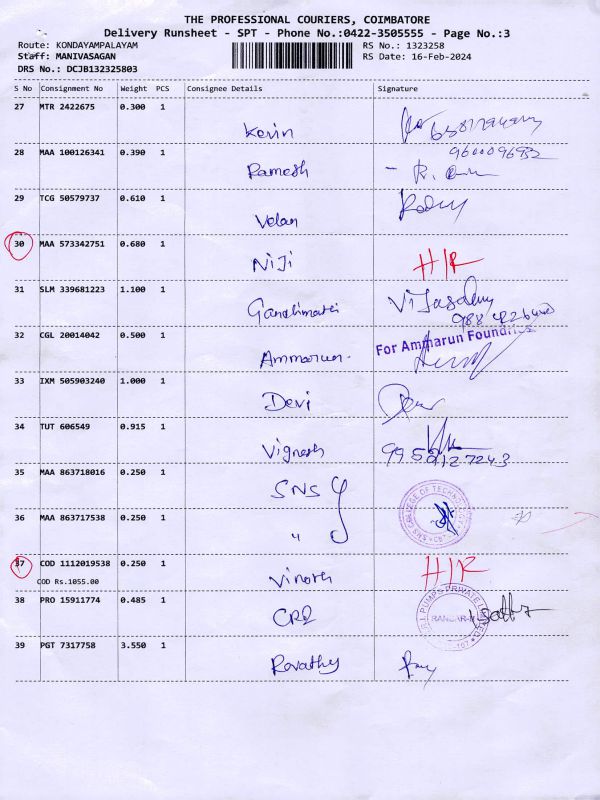 THE PROFESSIONAL COURIERS, COIMBATORE
Delivery Runsheet - SPT - Phone No.:0422-3505555 - Page No.:3
Route: KONDAYAMPALAYAM
RS No.: 1323258
Staff: MANIVASAGAN
RS Date: 16-Feb-2024
DRS No.: DCJB132325803
S No Consignment No Weight PCS Consignee Details Signature
27 MTR 2422675 0.300 1
Kevin
28 MAA 100126341 0.390 1
Ramesh
29 TCG 50579737 0.610 1
Velan
30 MAA 573342751 0.680 1
NiJi H/R
31 SLM 339681223 1.100 1
32 CGL 20014042 0.500 1
For Ammarun Foundries
Ammarun
33 IXM 505903240 1.000 1
Devi
34 TUT 606549 0.915 1
Vignesh
35 MAA 863718016 0.250 1
SNS
36 MAA 863717538 0.250 1
"
SNS COLLEGE OF TECHNOLOGY
37 COD 1112019538 0.250 1
COD Rs.1055.00
Vinoth H/R
38 PRO 15911774 0.485 1
PUMPS PRIVATE LIMITED
39 PGT 7317758 3.550 1
Revathy